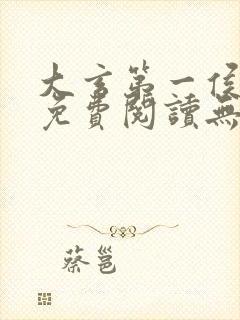 大言第一侯
免費閱讀無
蔡邕